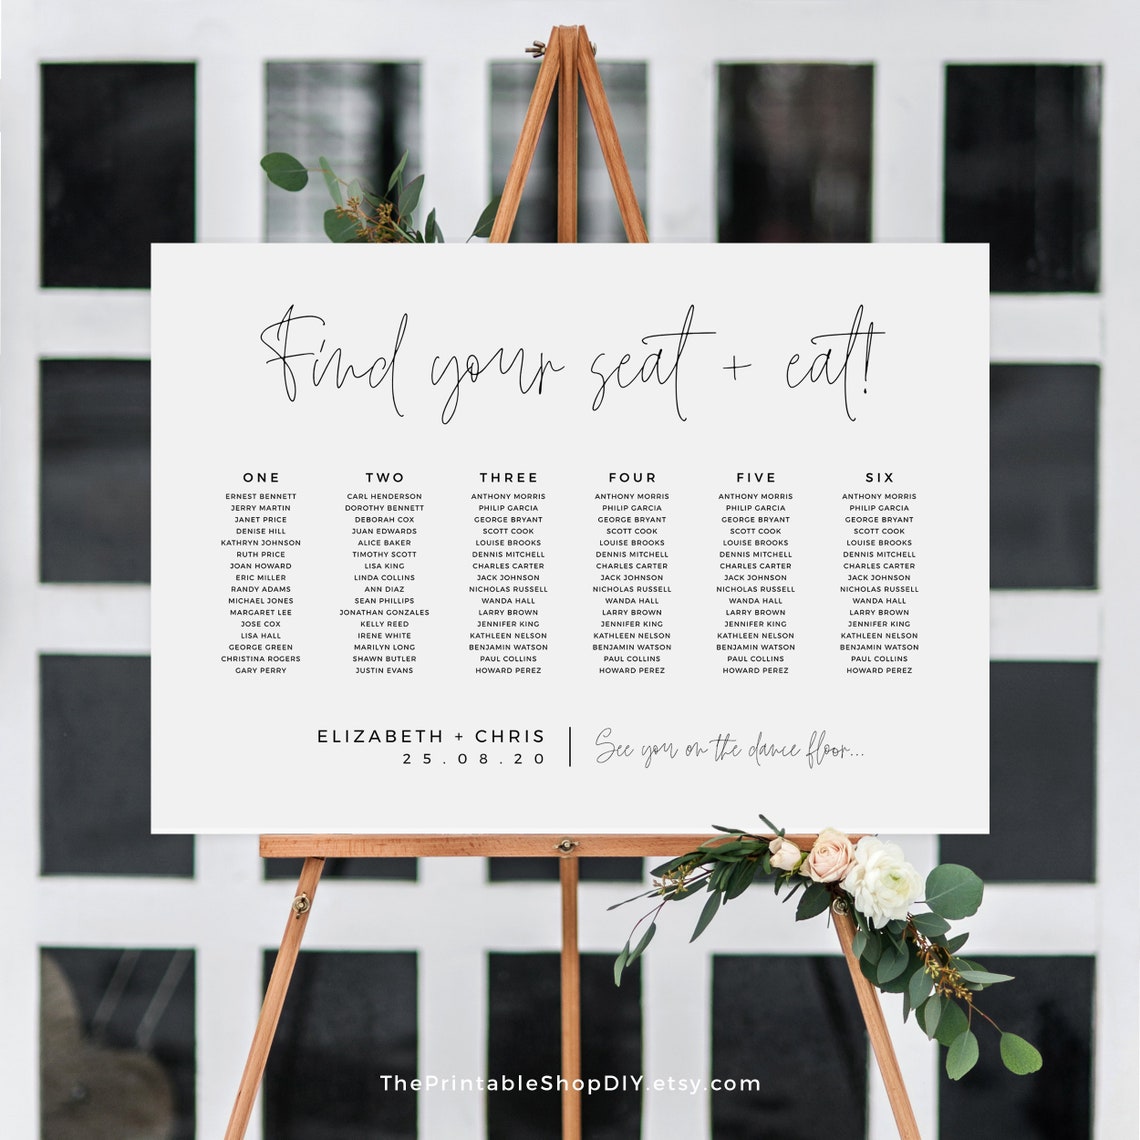 Find your seat + eat!
ONE
ERNEST BENNETT
JERRY MARTIN
JANET PRICE
DENISE HILL
KATHRYN JOHNSON
RUTH PRICE
JOAN HOWARD
ERIC MILLER
RANDY ADAMS
MICHAEL JONES
MARGARET LEE
JOSE COX
LISA HALL
GEORGE GREEN
CHRISTINA ROGERS
GARY PERRY
TWO
CARL HENDERSON
DOROTHY BENNETT
DEBORAH COX
JUAN EDWARDS
ALICE BAKER
TIMOTHY SCOTT
LISA KING
LINDA COLLINS
ANN DIAZ
SEAN PHILLIPS
JONATHAN GONZALES
KELLY REED
IRENE WHITE
MARILYN LONG
SHAWN BUTLER
JUSTIN EVANS
THREE
ANTHONY MORRIS
PHILIP GARCIA
GEORGE BRYANT
SCOTT COOK
LOUISE BROOKS
DENNIS MITCHELL
CHARLES CARTER
JACK JOHNSON
NICHOLAS RUSSELL
WANDA HALL
LARRY BROWN
JENNIFER KING
KATHLEEN NELSON
BENJAMIN WATSON
PAUL COLLINS
HOWARD PEREZ
FOUR
ANTHONY MORRIS
PHILIP GARCIA
GEORGE BRYANT
SCOTT COOK
LOUISE BROOKS
DENNIS MITCHELL
CHARLES CARTER
JACK JOHNSON
NICHOLAS RUSSELL
WANDA HALL
LARRY BROWN
JENNIFER KING
KATHLEEN NELSON
BENJAMIN WATSON
PAUL COLLINS
HOWARD PEREZ
FIVE
ANTHONY MORRIS
PHILIP GARCIA
GEORGE BRYANT
SCOTT COOK
LOUISE BROOKS
DENNIS MITCHELL
CHARLES CARTER
JACK JOHNSON
NICHOLAS RUSSELL
WANDA HALL
LARRY BROWN
JENNIFER KING
KATHLEEN NELSON
BENJAMIN WATSON
PAUL COLLINS
HOWARD PEREZ
SIX
ANTHONY MORRIS
PHILIP GARCIA
GEORGE BRYANT
SCOTT COOK
LOUISE BROOKS
DENNIS MITCHELL
CHARLES CARTER
JACK JOHNSON
NICHOLAS RUSSELL
WANDA HALL
LARRY BROWN
JENNIFER KING
KATHLEEN NELSON
BENJAMIN WATSON
PAUL COLLINS
HOWARD PEREZ
ELIZABETH + CHRIS
25.08.20
See you on the dance floor...
ThePrintableShopDIY.etsy.com